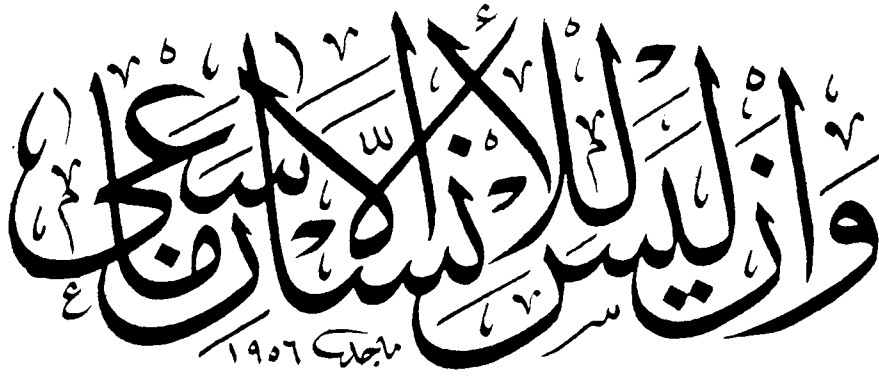 وَاَنْ لَيْسَ لِلْاِنْسَانِ اِلَّا مَا سَعٰى
ماجد ١٩٥٦